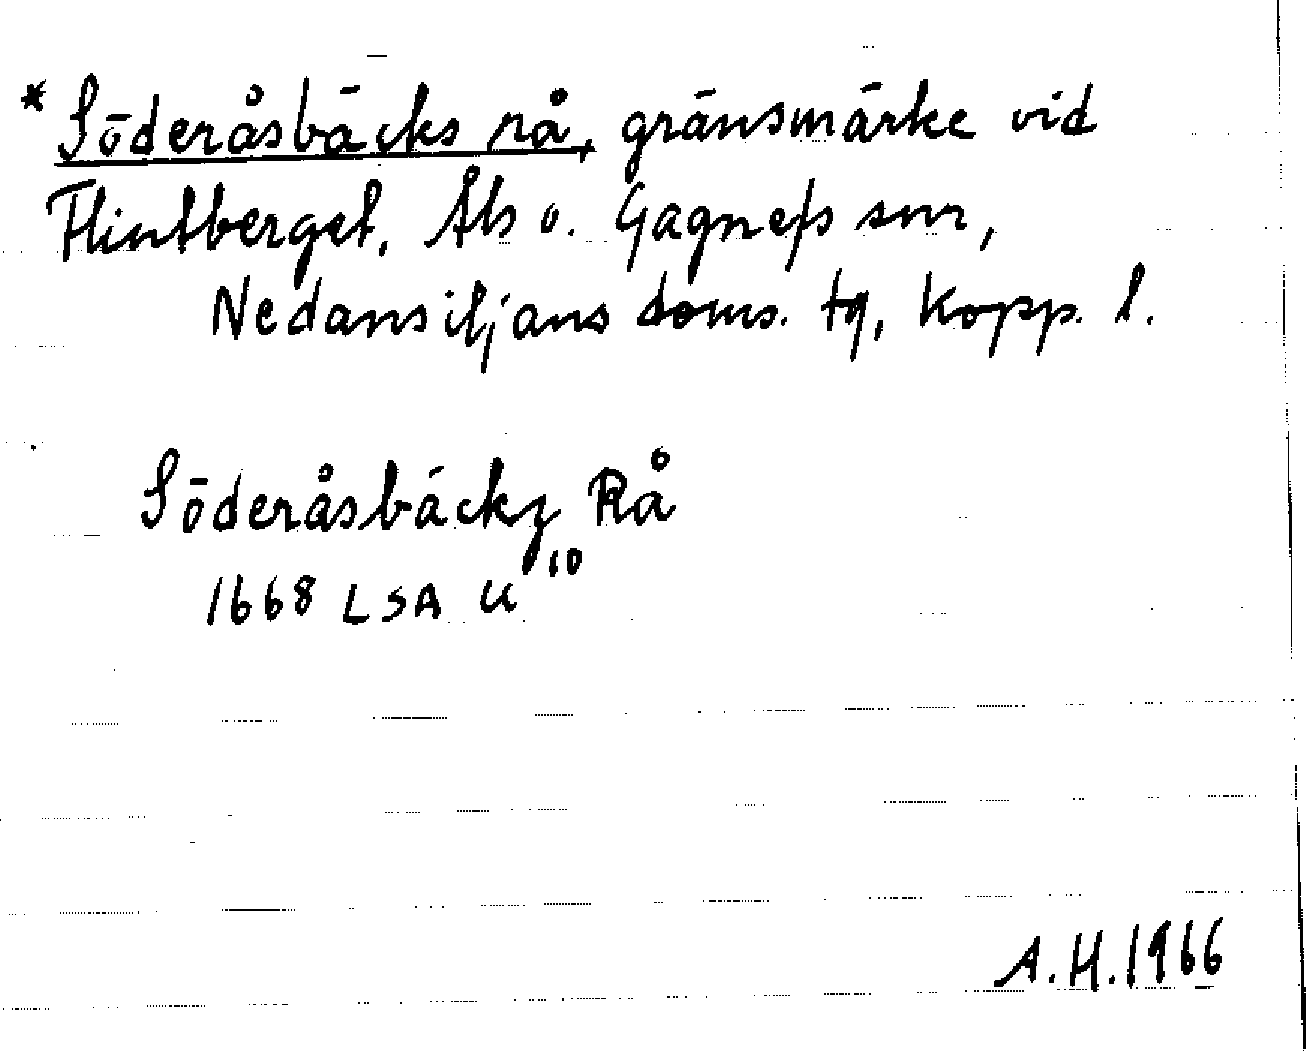 * Söderåsbäcks rå, gränsmärke vid
Flintberget, Åls o. Gagnefs snr,
Nedansiljans doms. tg, Kopp. l.
Söderåsbäckz Rå
1668 LSA U 10
A.H.1966